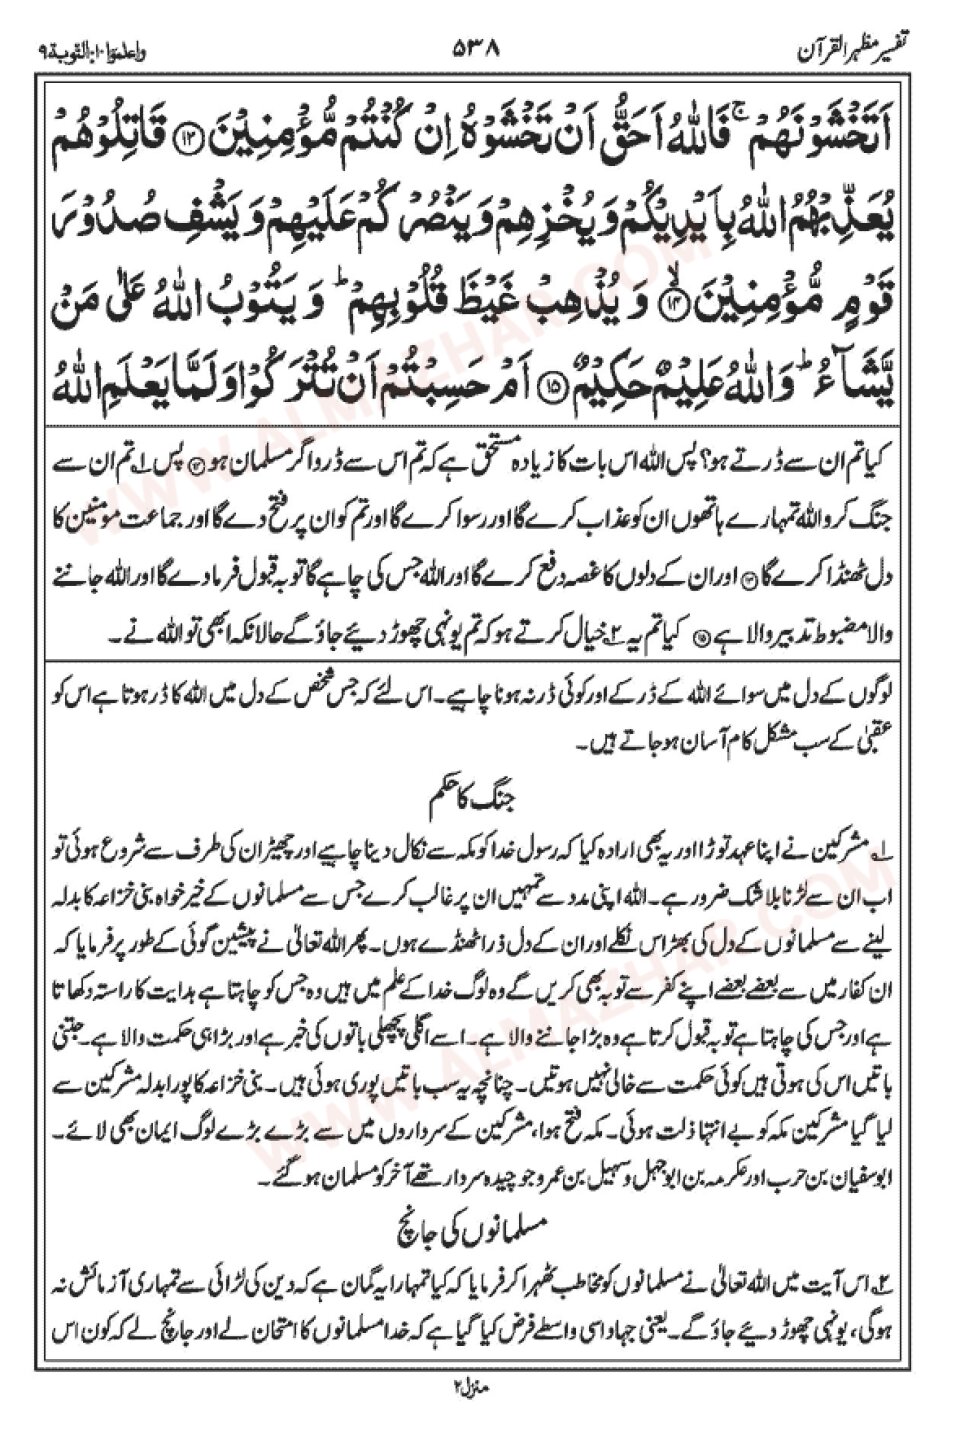 تفسیر مظہر القرآن ۵۳۸ واعلموا ۱۰: التوبة ۹
اَتَخْشَوْنَهُمْ ۚ فَاللّٰهُ اَحَقُّ اَنْ تَخْشَوْهُ اِنْ كُنْتُمْ مُّؤْمِنِيْنَ ۝۱۳ قَاتِلُوْهُمْ
يُعَذِّبْهُمُ اللّٰهُ بِاَيْدِيْكُمْ وَيُخْزِهِمْ وَيَنْصُرْكُمْ عَلَيْهِمْ وَيَشْفِ صُدُوْرَ
قَوْمٍ مُّؤْمِنِيْنَ ۝۱۴ۙ وَيُذْهِبْ غَيْظَ قُلُوْبِهِمْ ؕ وَيَتُوْبُ اللّٰهُ عَلٰى مَنْ
يَّشَآءُ ؕ وَاللّٰهُ عَلِيْمٌ حَكِيْمٌ ۝۱۵ اَمْ حَسِبْتُمْ اَنْ تُتْرَكُوْا وَلَمَّا يَعْلَمِ اللّٰهُ
کیا تم ان سے ڈرتے ہو؟ پس اللہ اس بات کا زیادہ مستحق ہے کہ تم اس سے ڈرو اگر مسلمان ہو ۝۱۳ پس ۱؎ تم ان سے
جنگ کرو اللہ تمہارے ہاتھوں ان کو عذاب کرے گا اور رسوا کرے گا اور تم کو ان پر فتح دے گا اور جماعت مومنین کا
دل ٹھنڈا کرے گا ۝۱۴ اور ان کے دلوں کا غصہ دفع کرے گا اور اللہ جس کی چاہے گا توبہ قبول فرما دے گا اور اللہ جاننے
والا مضبوط تدبیر والا ہے ۝۱۵ کیا تم یہ ۲؎ خیال کرتے ہو کہ تم یونہی چھوڑ دیئے جاؤ گے حالانکہ ابھی تو اللہ نے۔
لوگوں کے دل میں سوائے اللہ کے ڈر کے اور کوئی ڈر نہ ہونا چاہیے۔ اس لئے کہ جس شخص کے دل میں اللہ کا ڈر ہوتا ہے اس کو
عقبیٰ کے سب مشکل کام آسان ہو جاتے ہیں۔
جنگ کا حکم
۱؎ مشرکین نے اپنا عہد توڑا اور یہ بھی ارادہ کیا کہ رسول خدا کو مکہ سے نکال دینا چاہیے اور چھیڑ ان کی طرف سے شروع ہوئی تو
اب ان سے لڑنا بلا شک ضرور ہے۔ اللہ اپنی مدد سے تمہیں ان پر غالب کرے جس سے مسلمانوں کے خیر خواہ بنی خزاعہ کا بدلہ
لینے سے مسلمانوں کے دل کی بھڑاس نکلے اور ان کے دل ذرا ٹھنڈے ہوں۔ پھر اللہ تعالیٰ نے پیشین گوئی کے طور پر فرمایا کہ
ان کفار میں سے بعضے بعضے اپنے کفر سے توبہ بھی کریں گے وہ لوگ خدا کے علم میں ہیں وہ جس کو چاہتا ہے ہدایت کا راستہ دکھاتا
ہے اور جس کی چاہتا ہے توبہ قبول کرتا ہے وہ بڑا جاننے والا ہے۔ اسے اگلی پچھلی باتوں کی خبر ہے اور بڑا ہی حکمت والا ہے۔ جتنی
باتیں اس کی ہوتی ہیں کوئی حکمت سے خالی نہیں ہوتیں۔ چنانچہ یہ سب باتیں پوری ہوئی ہیں۔ بنی خزاعہ کا پورا بدلہ مشرکین سے
لیا گیا مشرکین مکہ کو بے انتہا ذلت ہوئی۔ مکہ فتح ہوا، مشرکین کے سرداروں میں سے بڑے بڑے لوگ ایمان بھی لائے۔
ابو سفیان بن حرب اور عکرمہ بن ابوجہل و سہیل بن عمرو جو چیدہ سردار تھے آخر کو مسلمان ہو گئے۔
مسلمانوں کی جانچ
۲؎ اس آیت میں اللہ تعالیٰ نے مسلمانوں کو مخاطب ٹھہرا کر فرمایا کہ کیا تمہارا یہ گمان ہے کہ دین کی لڑائی سے تمہاری آزمائش نہ
ہوگی، یونہی چھوڑ دیئے جاؤ گے۔ یعنی جہاد اسی واسطے فرض کیا گیا ہے کہ خدا مسلمانوں کا امتحان لے اور جانچ لے کہ کون اس
منزل ۲
WWW.ALMAZHAR.COM
WWW.ALMAZHAR.COM